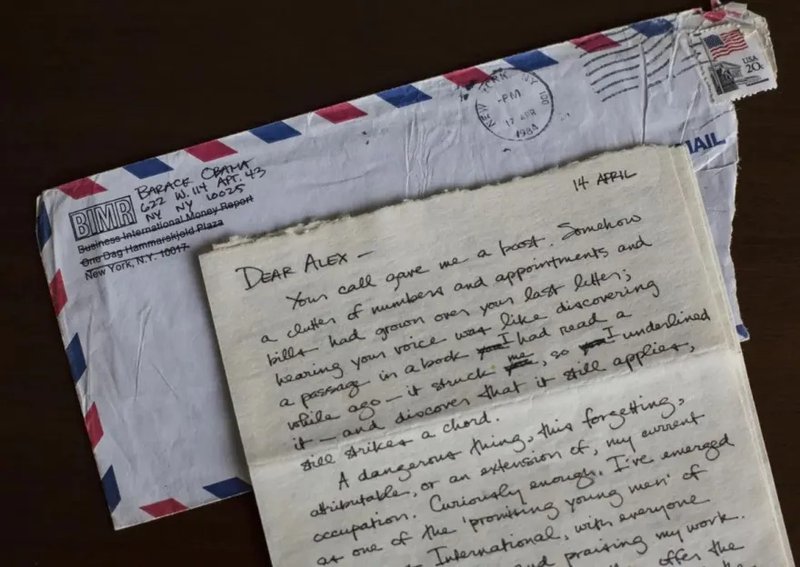 NEW YORK, NY 100
PM
17 APR
1984
USA
20c
MAIL
BARACK OBAMA
622 W. 114 APT. 43
NY NY 10025
BIMR
Business International Money Report
One Dag Hammarskjold Plaza
New York, N.Y. 10017
14 APRIL
DEAR ALEX —
Your call gave me a boost. Somehow
a clutter of numbers and appointments and
bills had grown over your last letter;
hearing your voice was like discovering
a passage in a book you I had read a
while ago — it struck me, so you I underlined
it — and discover that it still applies,
still strikes a chord.
A dangerous thing, this forgetting,
attributable, or an extension of, my current
occupation. Curiously enough, I've emerged
as one of the 'promising young men' of
International, with everyone
and praising my work.
offer the